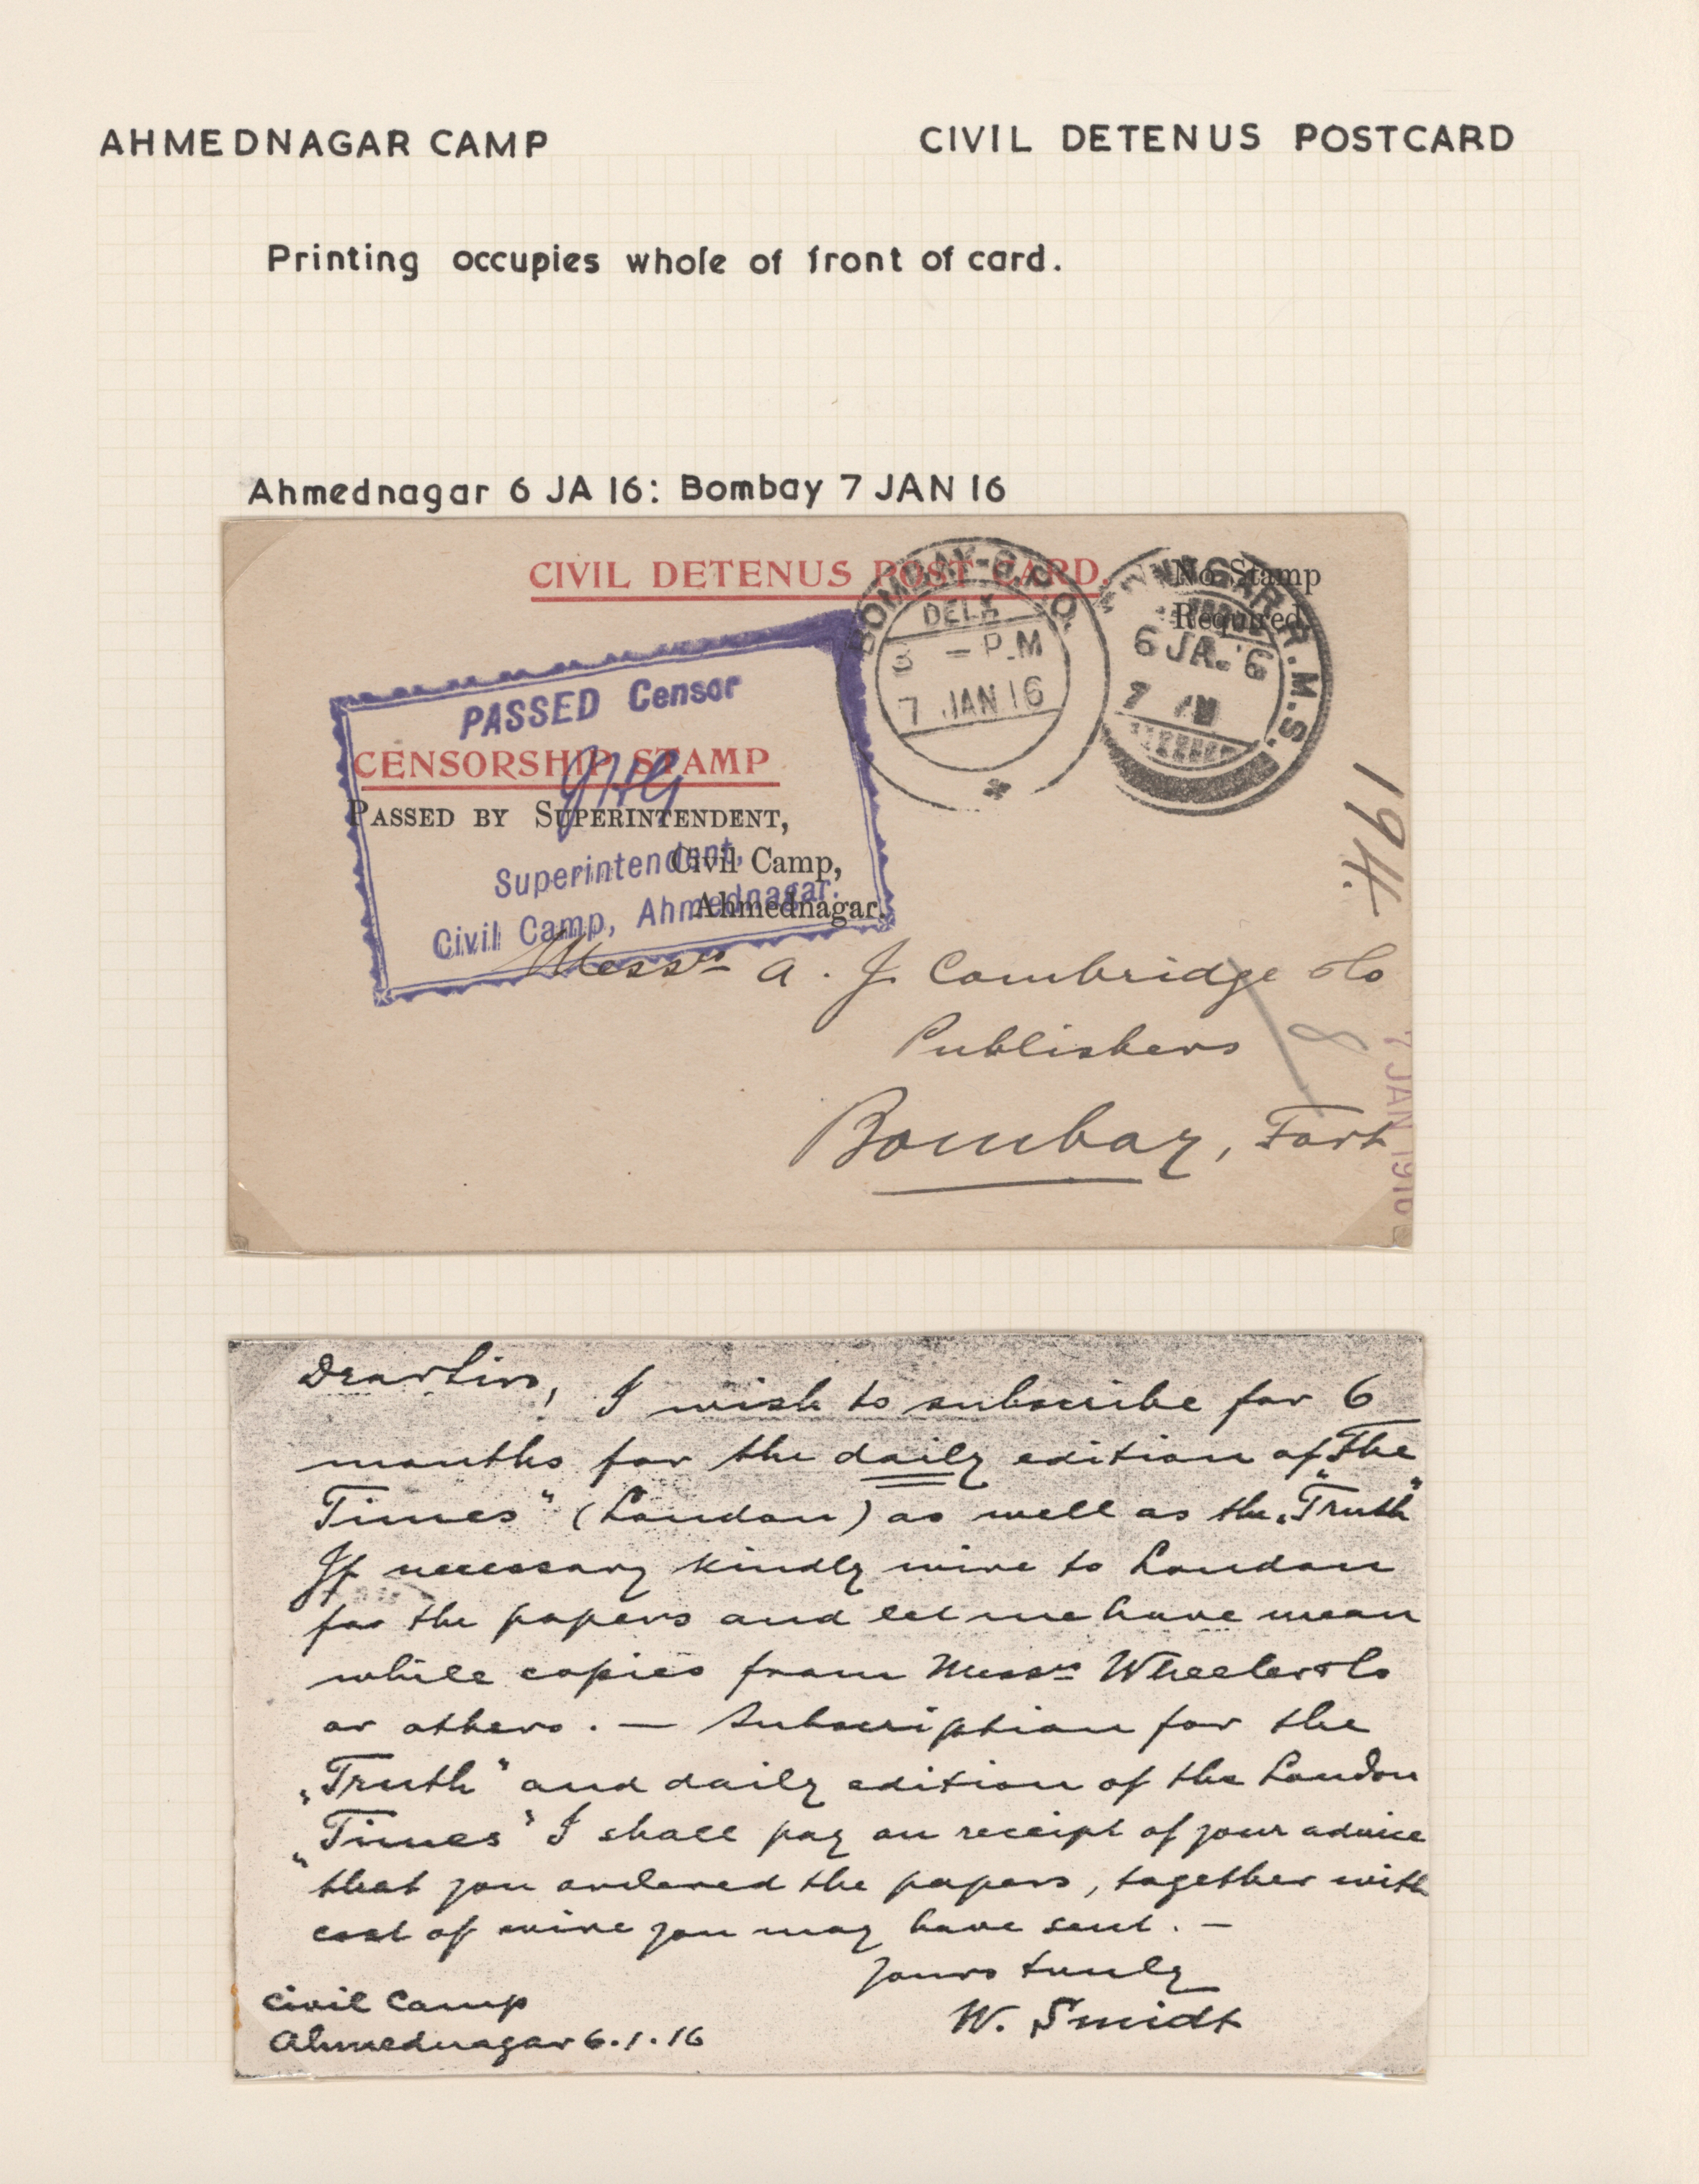 AHMEDNAGAR CAMP
CIVIL DETENUS POSTCARD
Printing occupies whole of front of card.
Ahmednagar 6 JA 16: Bombay 7 JAN 16
CIVIL DETENUS POST CARD.
No Stamp
Required.
BOMBAY-G.P.O.
DELY
3 - P.M
7 JAN 16
NAGAR R.M.S.
6 JA. 6
7 AM
PASSED Censor
CENSORSHIP STAMP
PASSED BY SUPERINTENDENT,
Civil Camp,
Ahmednagar.
Superintendent,
Civil Camp, Ahmednagar.
194.
Messrs A. J. Combridge & Co
Publishers
8
Bombay, Fort
7 JAN 1916
Dear Sirs,
! I wish to subscribe for 6
months for the daily edition of "The
Times" (London) as well as the „Truth"
If necessary kindly wire to London
for the papers and let me have mean
while copies from Messrs Wheeler & Co
or others. — Subscription for the
„Truth" and daily edition of the London
„Times" I shall pay on receipt of your advice
that you ordered the papers, together with
cost of wire you may have sent. —
Yours truly
W. Smidt
Civil Camp
Ahmednagar 6.1.16